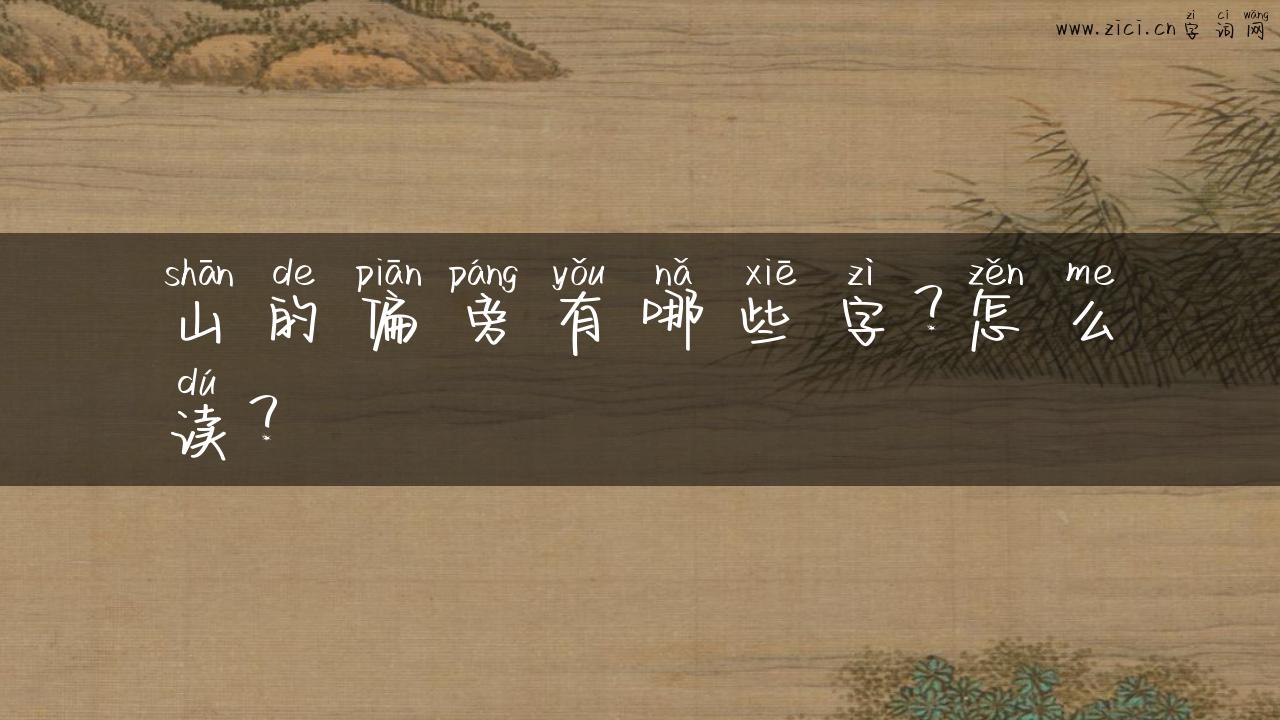 zì cí wǎng
www.zici.cn 字词网
shān de piān páng yǒu nǎ xiē zì zěn me
山的偏旁有哪些字？怎么
dú
读？